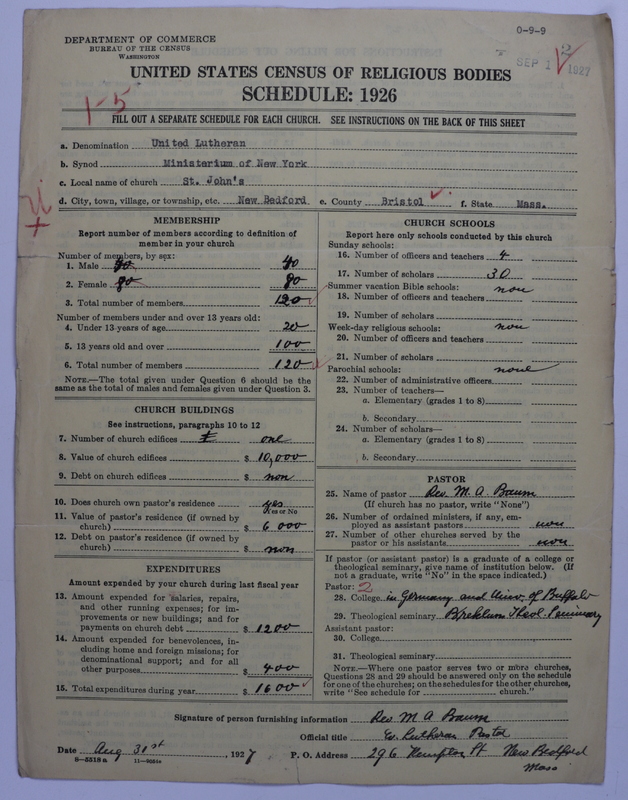 0-9-9
2
SEP 1 1927
DEPARTMENT OF COMMERCE
BUREAU OF THE CENSUS
WASHINGTON
UNITED STATES CENSUS OF RELIGIOUS BODIES
SCHEDULE: 1926
1-5
FILL OUT A SEPARATE SCHEDULE FOR EACH CHURCH. SEE INSTRUCTIONS ON THE BACK OF THIS SHEET
a. Denomination United Lutheran
b. Synod Ministerium of New York
c. Local name of church St. John's
d. City, town, village, or township, etc. New Bedford e. County Bristol f. State Mass.
MEMBERSHIP
Report number of members according to definition of
member in your church
Number of members, by sex:
1. Male 40 40
2. Female 80 80
3. Total number of members 120
Number of members under and over 13 years old:
4. Under 13 years of age 20
5. 13 years old and over 100
6. Total number of members 120
NOTE.—The total given under Question 6 should be
same as the total of males and females given under Question 3.
CHURCH BUILDINGS
See instructions, paragraphs 10 to 12
7. Number of church edifices one
8. Value of church edifices $ 10,000
9. Debt on church edifices $ non
10. Does church own pastor's residence yes
Yes or No
11. Value of pastor's residence (if owned by
church) $ 6 000
12. Debt on pastor's residence (if owned by
church) $ non
EXPENDITURES
Amount expended by your church during last fiscal year
13. Amount expended for salaries, repairs,
and other running expenses; for im-
provements or new buildings; and for
payments on church debt $ 1200
14. Amount expended for benevolences, in-
cluding home and foreign missions; for
denominational support; and for all
other purposes $ 400
15. Total expenditures during year $ 1600
CHURCH SCHOOLS
Report here only schools conducted by this church
Sunday schools:
16. Number of officers and teachers 4
17. Number of scholars 30
Summer vacation Bible schools: non
18. Number of officers and teachers
19. Number of scholars
Week-day religious schools: non
20. Number of officers and teachers
21. Number of scholars
Parochial schools: none
22. Number of administrative officers
23. Number of teachers—
a. Elementary (grades 1 to 8)
b. Secondary
24. Number of scholars—
a. Elementary (grades 1 to 8)
b. Secondary
PASTOR
25. Name of pastor Rev. M. A. Baum
(If church has no pastor, write "None")
26. Number of ordained ministers, if any, em-
ployed as assistant pastors non
27. Number of other churches served by the
pastor or his assistants non
If pastor (or assistant pastor) is a graduate of a college or
theological seminary, give name of institution below. (If
not a graduate, write "No" in the space indicated.)
Pastor: 2
28. College in Germany and Univ. of Buffalo
29. Theological seminary Breklum Theol. Seminary
Assistant pastor:
30. College
31. Theological seminary
NOTE.—Where one pastor serves two or more churches,
Questions 28 and 29 should be answered only on the schedule
for one of the churches; on the schedules for the other churches,
write "See schedule for church."
Signature of person furnishing information Rev M A Baum
Official title Ev. Lutheran Pastor
Date Aug 31st, 1927 P. O. Address 296 Kempton St New Bedford
Mass
8-5518a